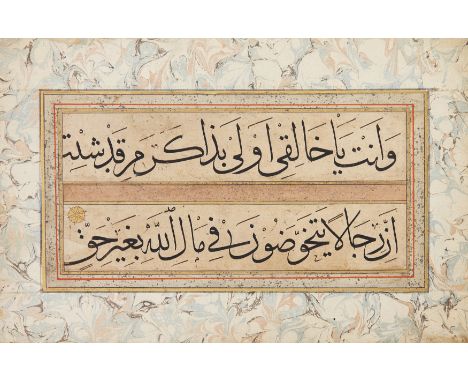 وَانت يَا خَالقى اَولىٰ بذا كَرَم قَدْ شِبْت
اِنّ رجَالاً يتخَوّضُونَ فى مَالِ اللّٰه بغَيْرِ حَقّ